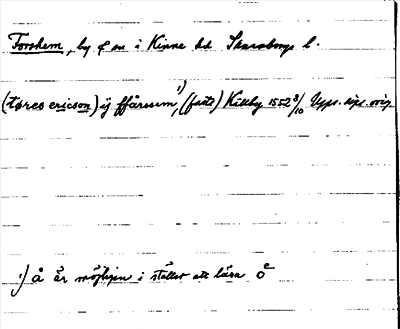 Forshem, by o sn i Kinne hd Skaraborgs l.
(tøres ericson) ÿ ffårssem,¹) (faste) Killby 1552 3/10 Upps. dipl. orig.
¹) å är möjligen i stället att läsa oͤ